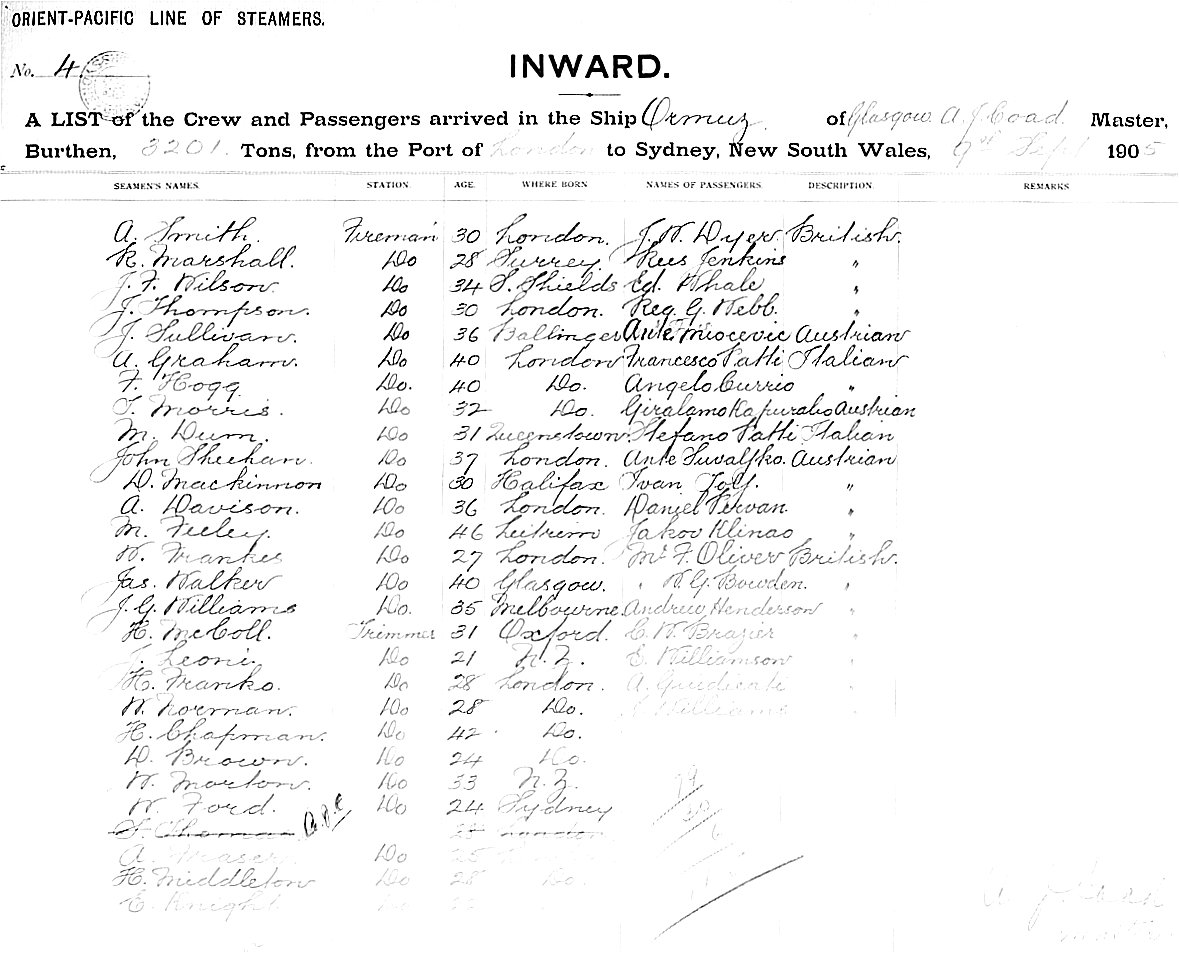 ORIENT-PACIFIC LINE OF STEAMERS.
No. 4
INWARD.
A LIST of the Crew and Passengers arrived in the Ship Ormuz of Glasgow A. J. Coad Master,
Burthen, 3201. Tons, from the Port of London to Sydney, New South Wales, 9th Sept 1905
SEAMEN'S NAMES. STATION. AGE. WHERE BORN NAMES OF PASSENGERS. DESCRIPTION. REMARKS
A. Smith. Fireman 30 London. J. W. Dyer. British.
R. Marshall. Do 28 Surrey. Rees Jenkins "
J. F. Wilson. Do 34 S. Shields Ed. Whale "
J. Thompson. Do 30 London. Reg. G. Webb. "
J. Sullivan. Do 36 Ballinger Ante Miocevic Austrian
A. Graham. Do 40 London Francesco Patti Italian
F. Hogg Do. 40 Do. Angelo Currio "
T. Morris. Do 32 Do. Giralamo Kapuralio Austrian
M. Dum. Do 31 Queenstown. Stefano Patti Italian
John Sheehan. Do 37 London. Ante Austrian
D. Mackinnon Do 30 Halifax Ivan "
A. Davison. Do 36 London. Daniel Pervan "
M. Feeley. Do 46 Leitrim Jakov Klinao "
W. Frankes Do 27 London. Mr. F. Oliver British.
Jas. Walker Do 40 Glasgow. " W. G. Bowden. "
J. G. Williams Do. 35 Melbourne Andrew Henderson "
H. McColl. Trimmer 31 Oxford. C. W. Brazier "
J. Leoni. Do 21 N. Z. E. Williamson "
H. Franko. Do 28 London. A. Giudicati "
W. Norman. Do 28 Do. J. Williams "
H. Chapman. Do 42 Do.
D. Brown. Do 24 Do.
W. Morton. Do 33 N. Z.
W. Ford. Do 24 Sydney
S. Thomas 28 London
A. Fraser Do 25
H. Middleton Do 28 Do.
E. Knight Do
A. J. Coad
Master